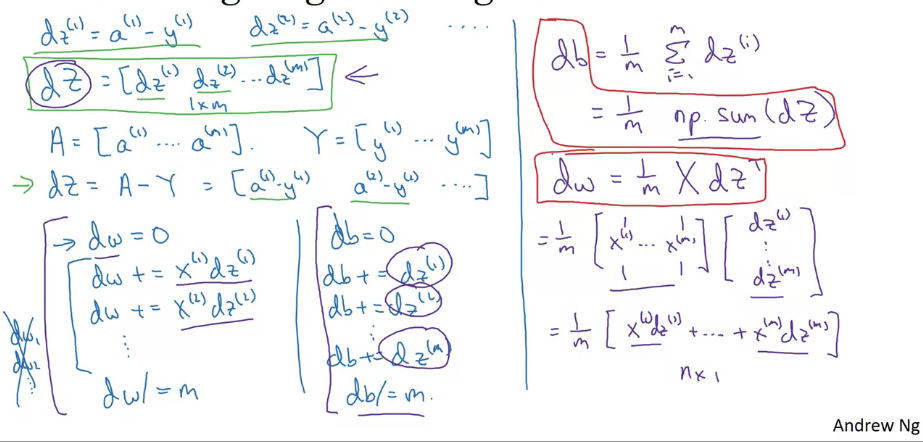 dz⁽¹⁾ = a⁽¹⁾ - y⁽¹⁾ dz⁽²⁾ = a⁽²⁾ - y⁽²⁾ ....
dZ = [dz⁽¹⁾ dz⁽²⁾ ... dz⁽ᵐ⁾] ←
1×m
A = [a⁽¹⁾ .... a⁽ᵐ⁾]. Y = [y⁽¹⁾ ... y⁽ᵐ⁾]
→ dZ = A - Y = [a⁽¹⁾-y⁽¹⁾ a⁽²⁾-y⁽²⁾ ....]
→ dw = 0
dw += x⁽¹⁾dz⁽¹⁾
dw += x⁽²⁾dz⁽²⁾
⋮
dw/= m
dw₁
dw₂
⋮
db=0
db+= dz⁽¹⁾
db+= dz⁽²⁾
⋮
db+= dz⁽ᵐ⁾
db/= m.
db = 1/m Σᵢ₌₁ᵐ dz⁽ⁱ⁾
= 1/m np.sum(dZ)
dw = 1/m X dZᵀ
= 1/m [x⁽¹⁾ ... x⁽ᵐ⁾] [dz⁽¹⁾ ⋮ dz⁽ᵐ⁾]
= 1/m [x⁽¹⁾dz⁽¹⁾ + ... + x⁽ᵐ⁾dz⁽ᵐ⁾]
n×1
Andrew Ng